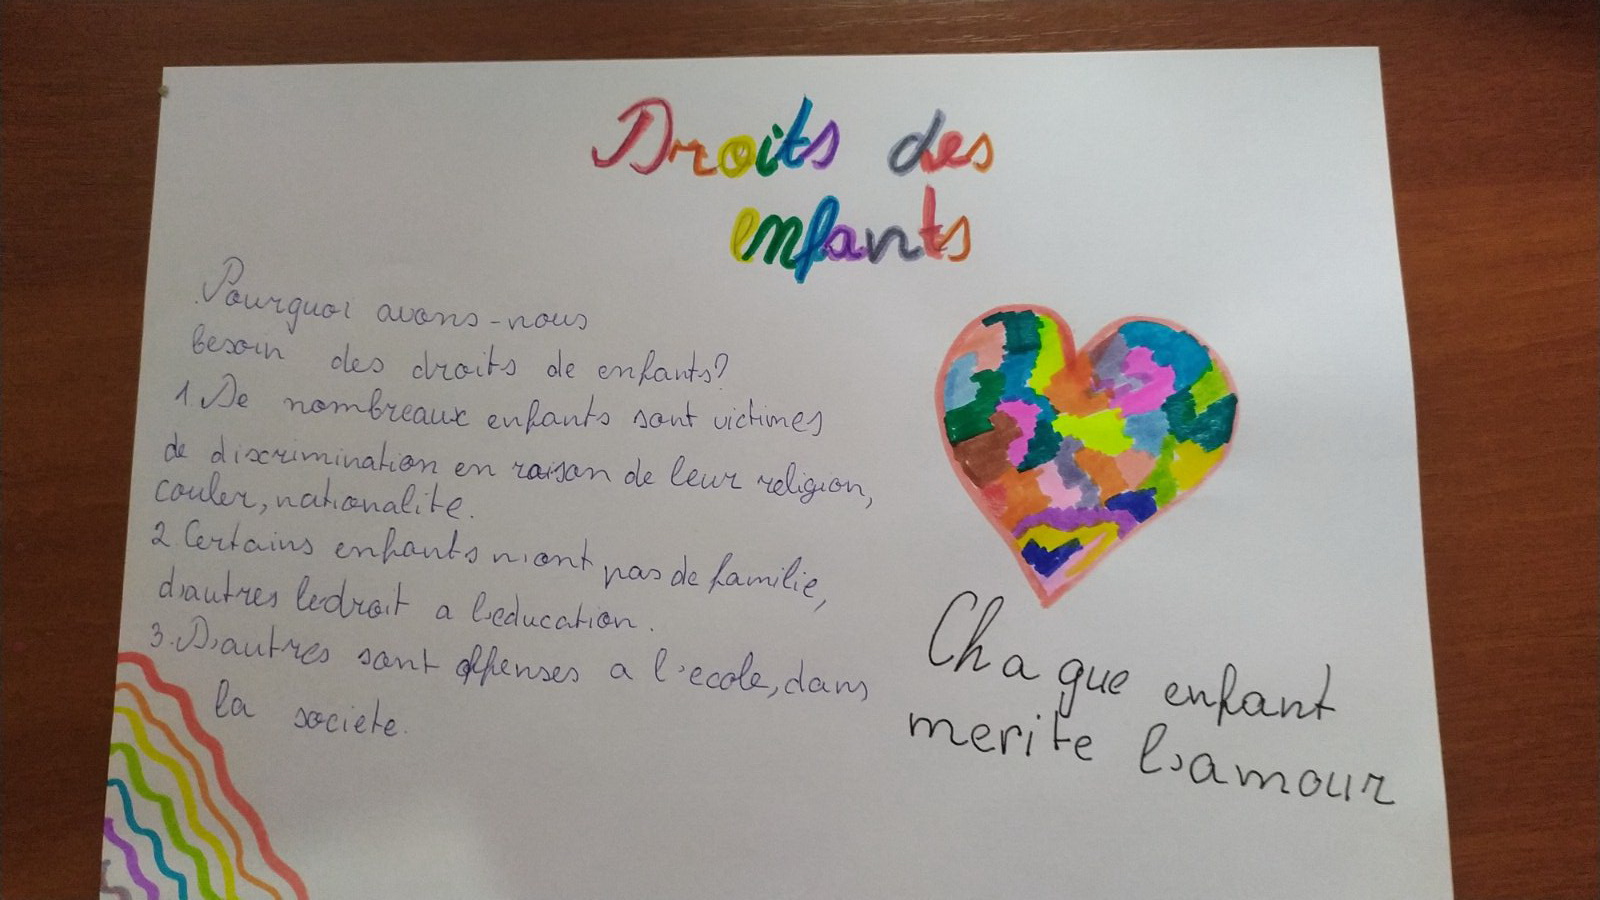 Droits des
enfants
Pourquoi avons-nous
besoin des droits de enfants?
1. De nombreaux enfants sont victimes
de discrimination en raison de leur religion,
couler, nationalite.
2. Certains enfants n'ont pas de familie,
d'autres le droit a l'education.
3. D'autres sont offenses a l'ecole, dans
la societe.
Chaque enfant
merite l'amour